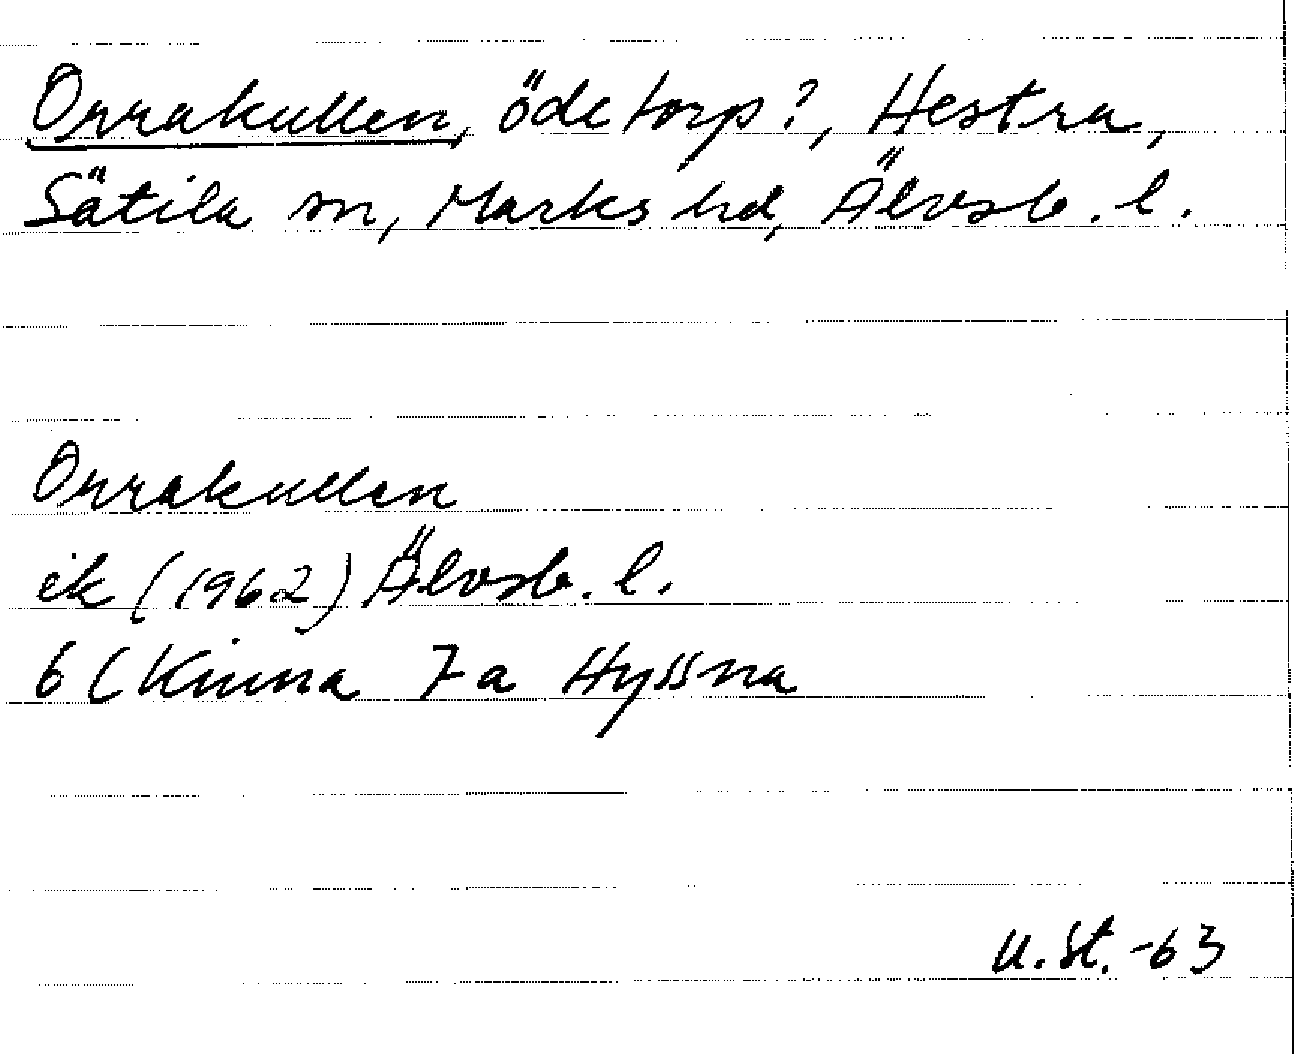 Orrakullen, ödetorp?, Hestra,
Sätila sn, Marks hd, Älvsb. l.
Orrakullen
ek (1962) Älvsb. l.
6 C Kinna 7 a Hyssna
U. St. -63